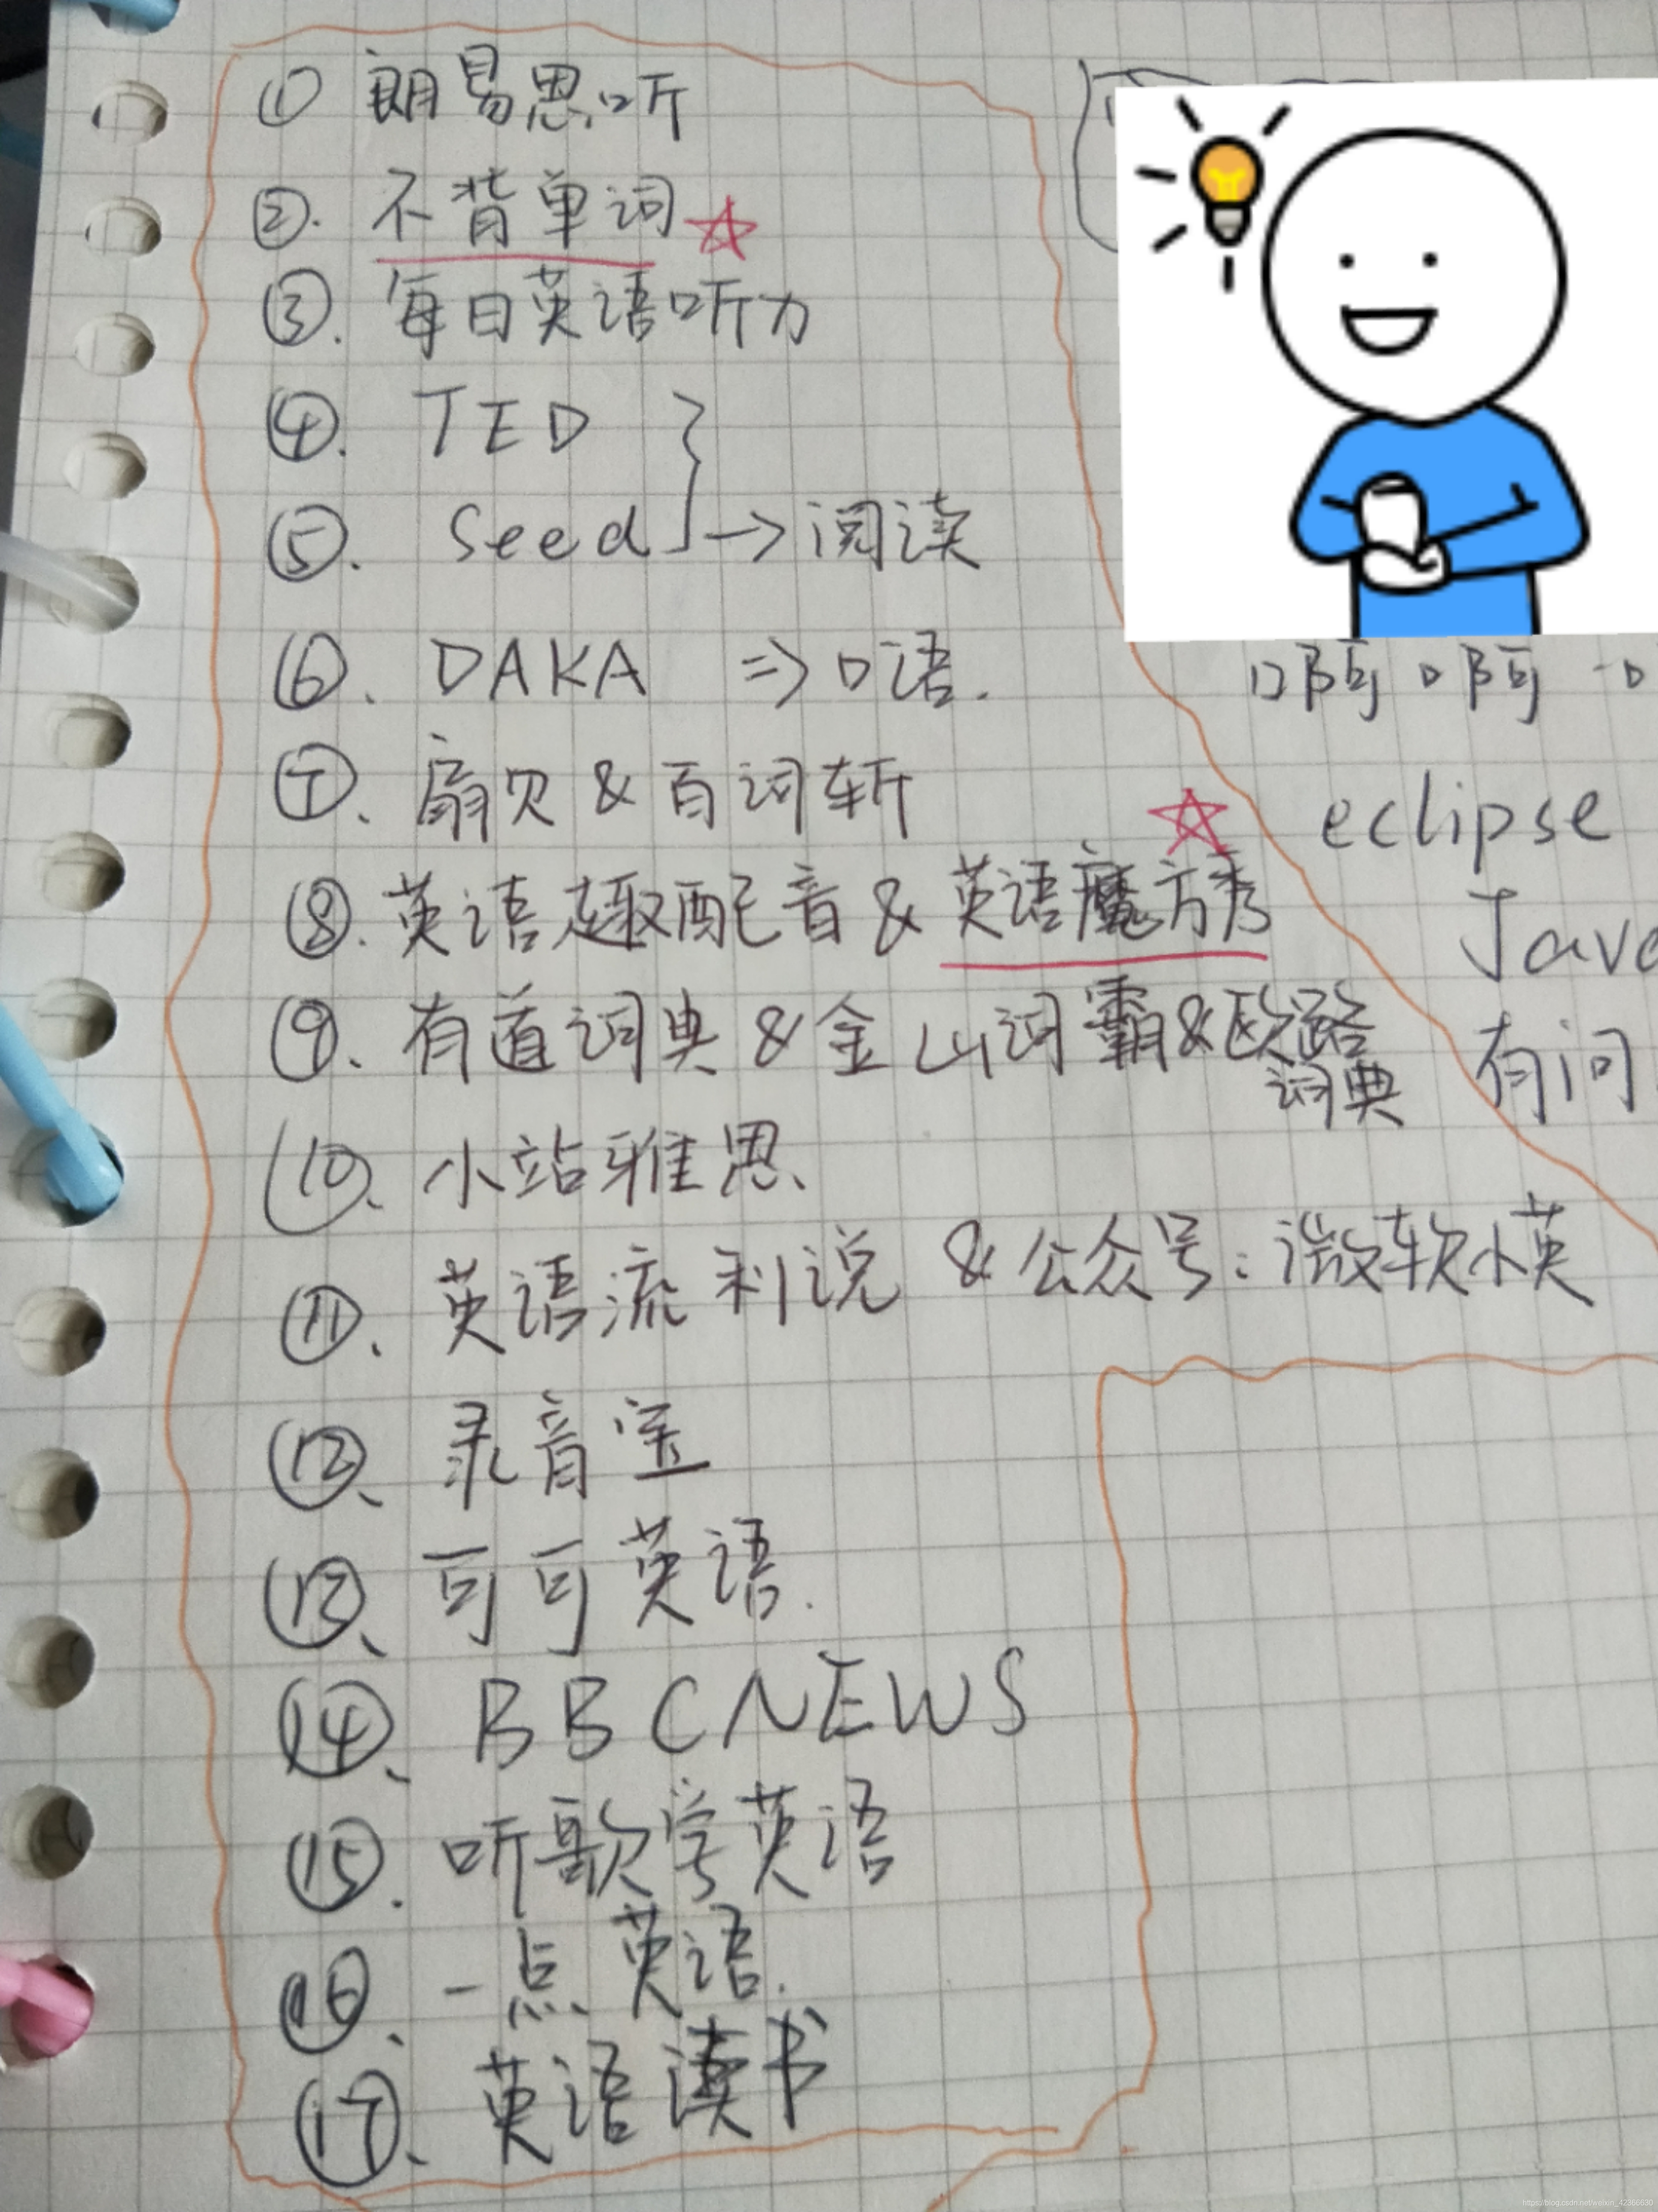 ① 朗易思听
②. 不背单词
③. 每日英语听力
④. TED
⑤. Seed → 阅读
⑥. DAKA ⇒ 口语.
⑦、扇贝 & 百词斩
⑧. 英语趣配音 & 英语魔方秀
⑨、有道词典 & 金山词霸 & 欧路
词典
⑩、小站雅思、
⑪、英语流利说 & 公众号：微软小英
⑫、录音宝
⑬、可可英语.
⑭、BBC NEWS
⑮. 听歌学英语
⑯、一点英语.
⑰、英语读书
啊啊
eclipse
Java
有问
https://blog.csdn.net/weixin_42366630